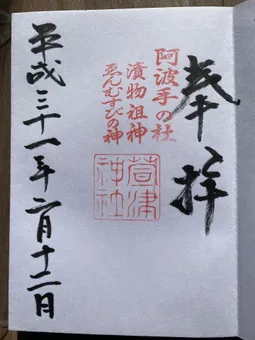 奉拝
阿波手の社
漬物祖神
ゑんむすびの神
萱津
神社
平成三十一年二月十二日